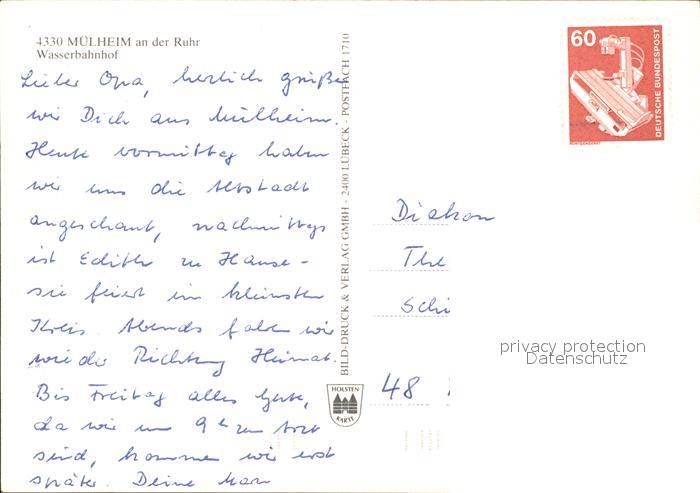 4330 MÜLHEIM an der Ruhr
Wasserbahnhof
Lieber Opa, herzlich grüßen
wir Dich aus Mülheim.
Heute vormittag haben
wir uns die Altstadt
angeschaut, nachmittags
ist Edith zu Hause -
sie feiert im kleinsten
Kreis. Abends fahren wir
wieder Richtung Heimat.
Bis Freitag alles Gute,
da wir um 9 h zum Arzt
sind, kommen wir erst
später. Deine
BILD-DRUCK & VERLAG GMBH - 2400 LÜBECK - POSTFACH 1710
HOLSTEN
KARTE
60
DEUTSCHE BUNDESPOST
RÖNTGENGERÄT
Diakon
The
Schi
48
privacy protection
Datenschutz